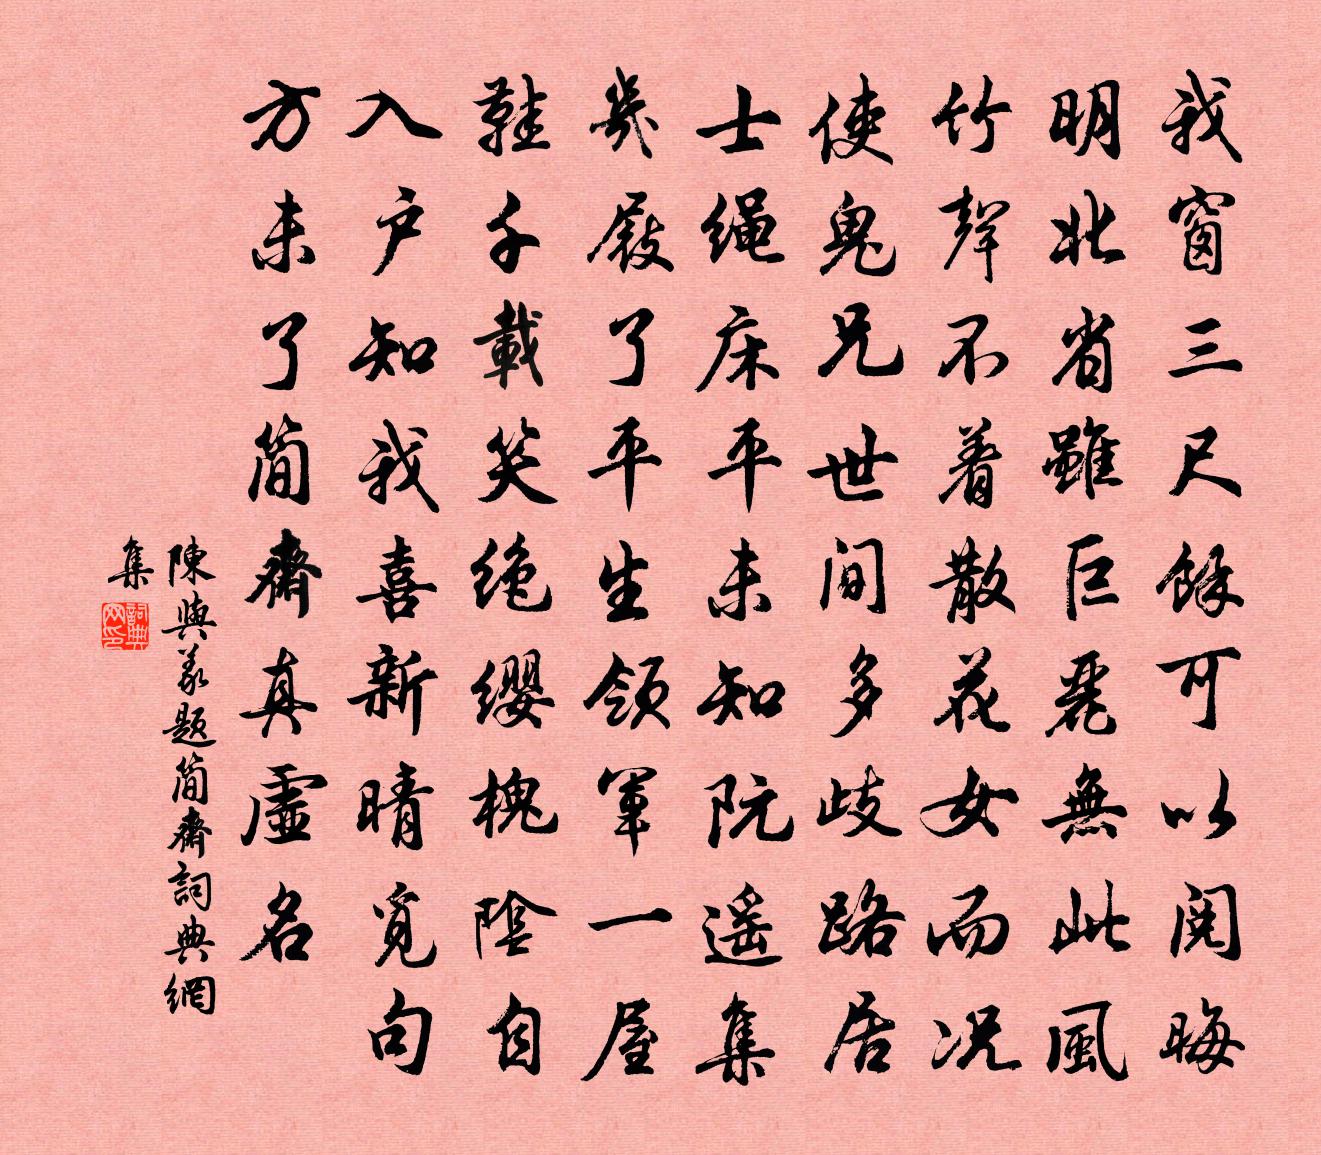 我窗三尺餘可以閱晦
明北省雖巨麗無此風
竹聲不着散花女而況
使鬼兄世間多歧路居
士绳床平未知阮遥集
幾屐了平生领軍一屋
鞋千載笑绝缨槐陰自
入户知我喜新晴覓句
方未了简齋真虚名
陳與義題简齋詞典網
集
詞典网印